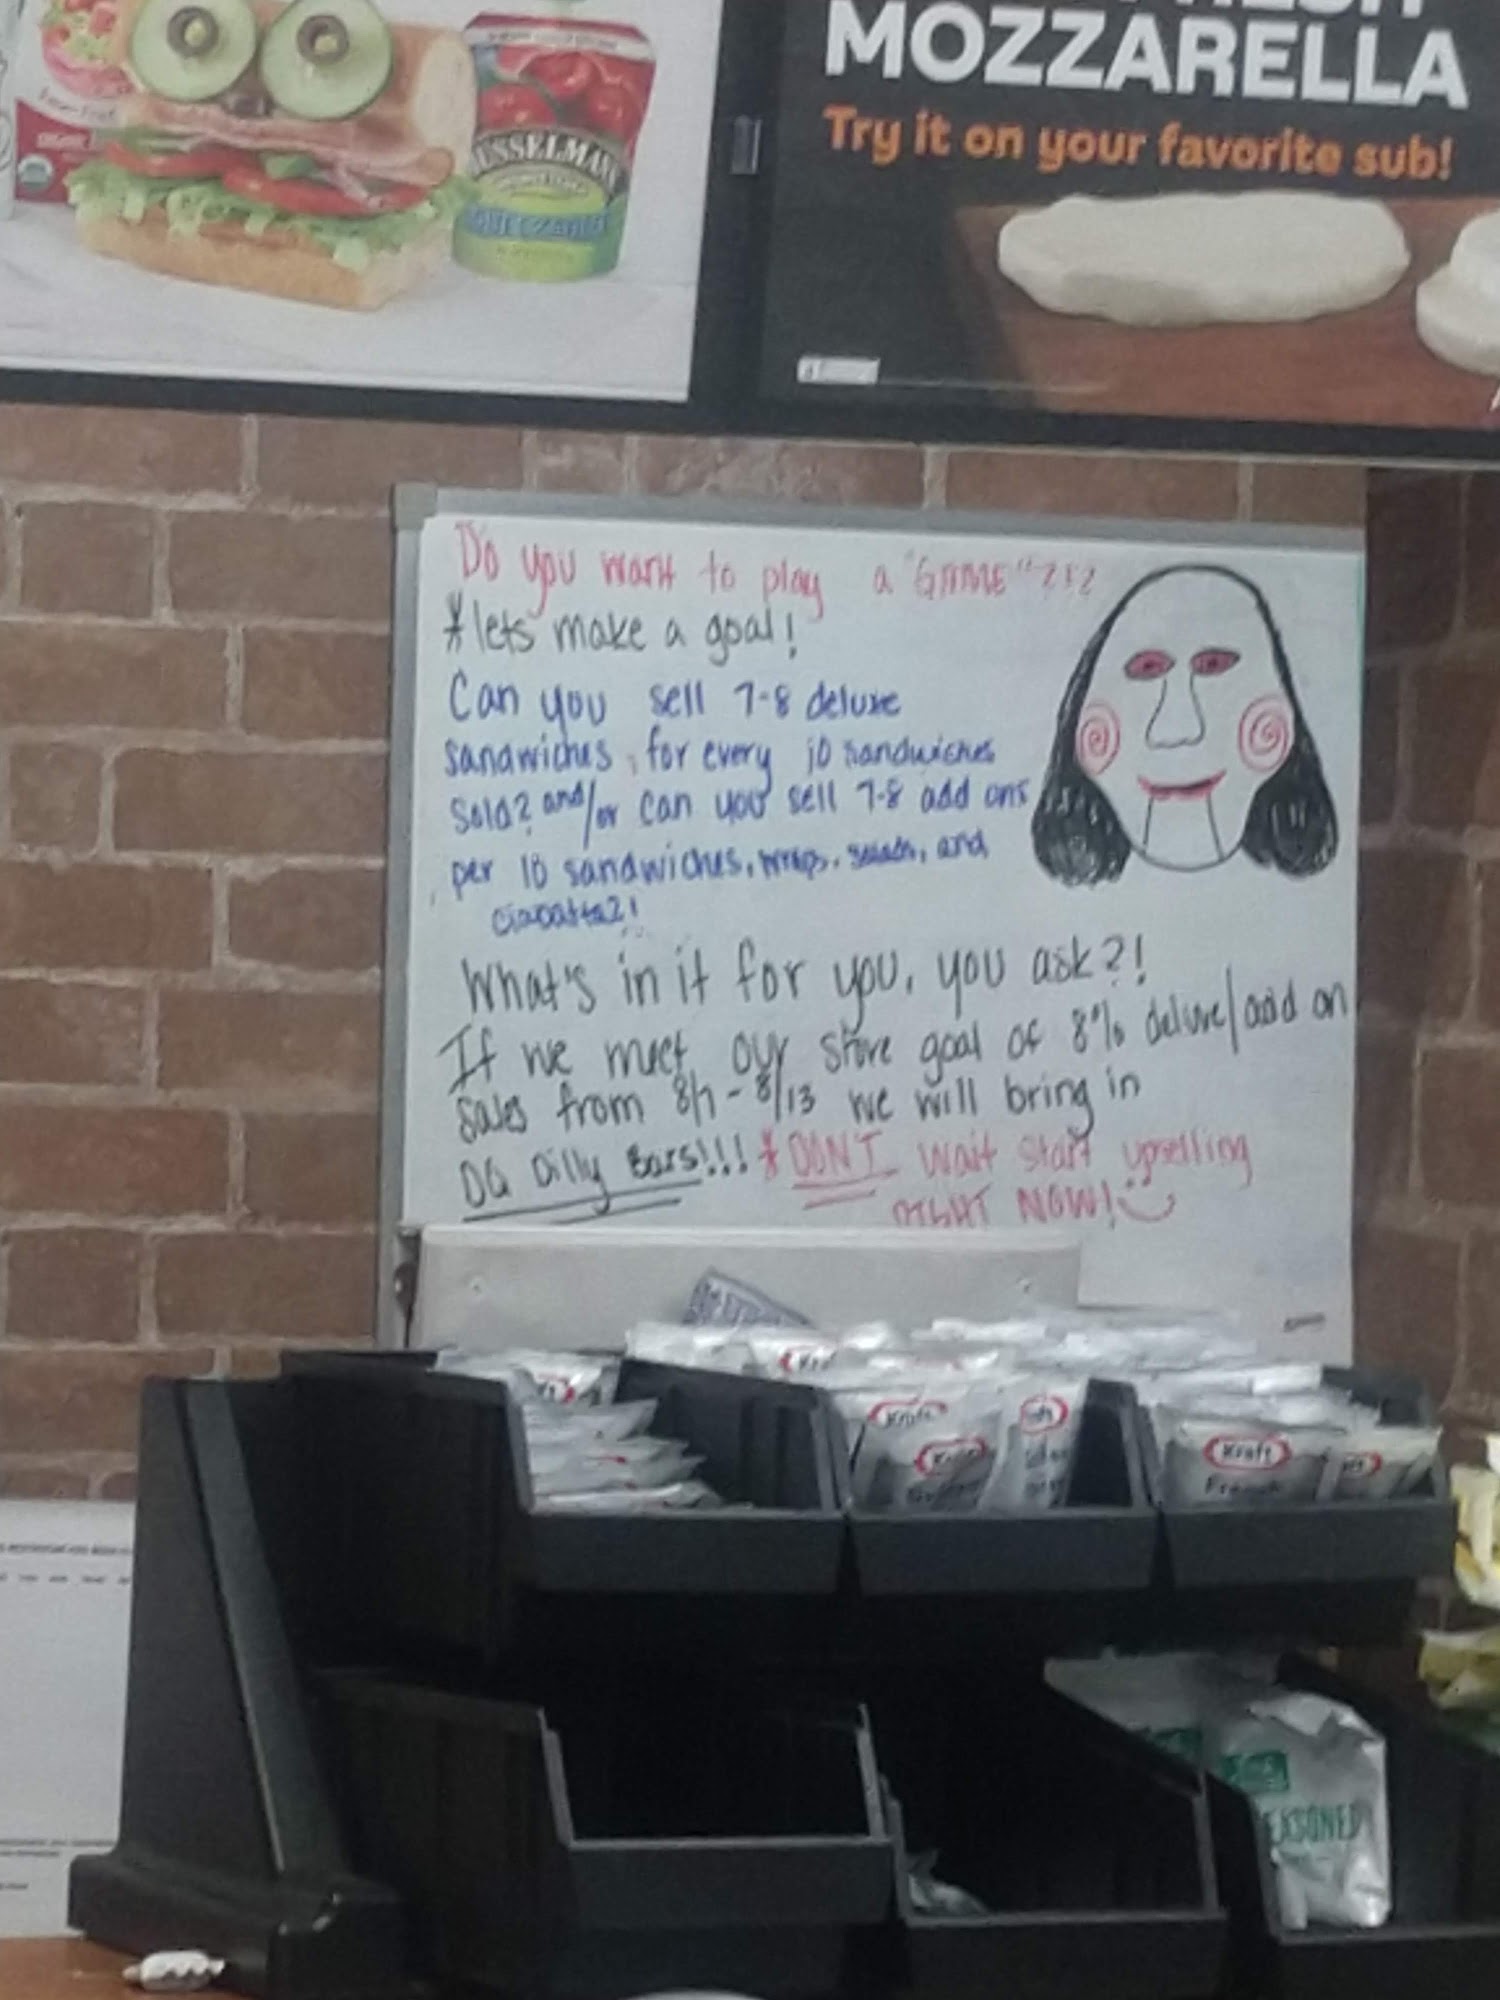 MOZZARELLA
Try it on your favorite sub!
Do you want to play a "GAME"?!?
*lets make a goal!
Can you sell 7-8 deluxe
sandwiches, for every 10 sandwiches
sold? and/or can you sell 7-8 add ons
per 10 sandwiches, wraps, salads, and
What's in it for you, you ask?!
If we meet our store goal of 8% deluxe/add on
sales from 8/7-8/13 we will bring in
DQ Dilly Bars!!! *DON'T wait start upselling
RIGHT NOW!
Kraft
Kraft
Kraft